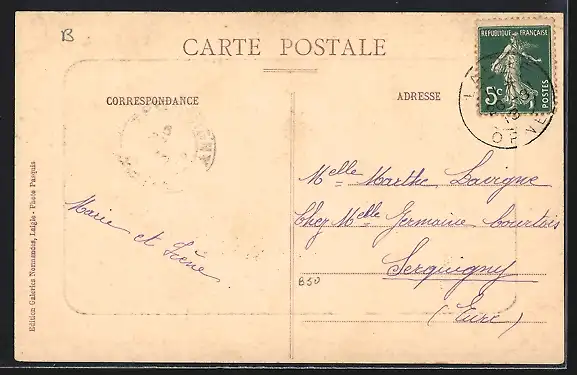 B
CARTE POSTALE
RÉPUBLIQUE FRANÇAISE
5c
POSTES
ORNE
CORRESPONDANCE
ADRESSE
Melle Marthe Lavigne
Chez Melle Germaine Courtois
Serquigny
(Eure)
Marie et Irène
B50
Edition Galeries Normandes, Laigle - Photo Pasquis